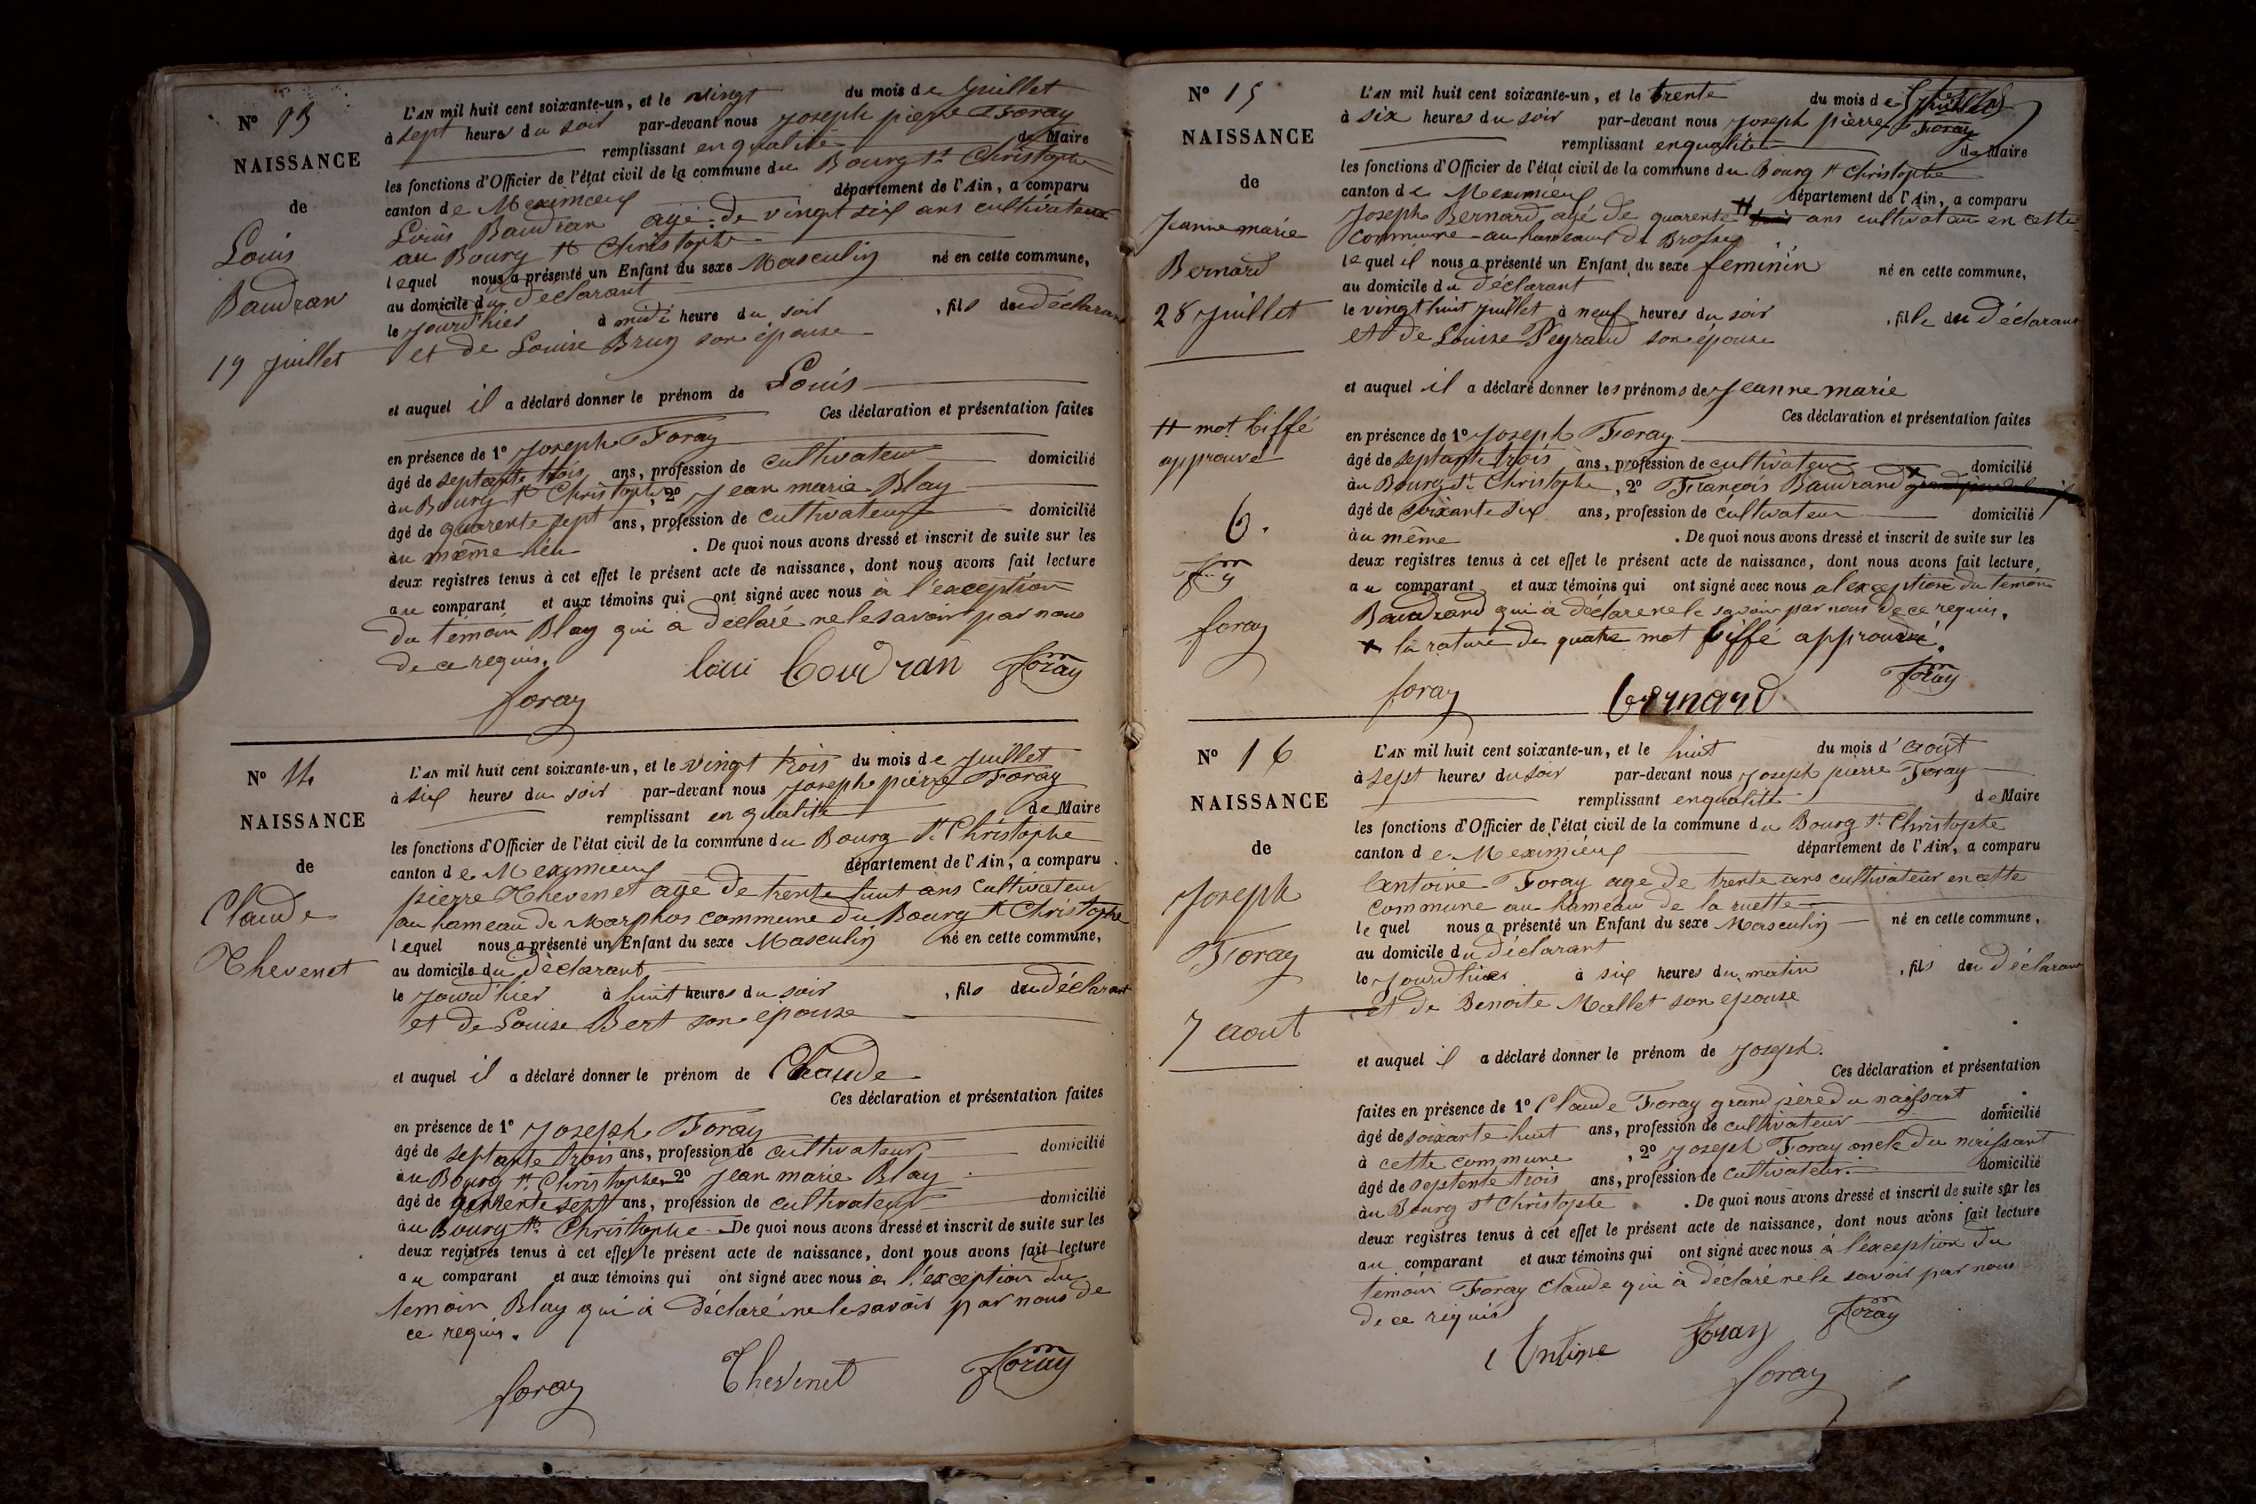 N° 13
NAISSANCE
de
Louis
Baudran
19 Juillet
L'AN mil huit cent soixante-un, et le vingt du mois de Juillet
à sept heures du soir par-devant nous Joseph pierre Foray
remplissant en qualité de Maire
les fonctions d'Officier de l'état civil de la commune du Bourg St Christophe
canton de Meximieux département de l'Ain, a comparu
Louis Baudran agé de vingt six ans cultivateur
au Bourg St Christophe
lequel nous a présenté un Enfant du sexe Masculin né en cette commune,
au domicile du déclarant
le Jourd'hier à midi heure du soir, fils du déclarant
et de Louise Brun son épouse
et auquel il a déclaré donner le prénom de Louis
Ces déclaration et présentation faites
en présence de 1° Joseph Foray
âgé de septante trois ans, profession de cultivateur domicilié
au Bourg St Christophe, 2° Jean marie Blay
âgé de quarente sept ans, profession de cultivateur domicilié
au même lieu. De quoi nous avons dressé et inscrit de suite sur les
deux registres tenus à cet effet le présent acte de naissance, dont nous avons fait lecture
au comparant et aux témoins qui ont signé avec nous à l'exception
du témoin Blay qui a déclaré ne le savoir par nous
de ce requis.
loui boudran foray
foray
N° 14
NAISSANCE
de
Claude
Thevenet
L'AN mil huit cent soixante-un, et le vingt trois du mois de Juillet
à six heures du soir par-devant nous Joseph pierre Foray
remplissant en qualité de Maire
les fonctions d'Officier de l'état civil de la commune du Bourg St Christophe
canton de Meximieux département de l'Ain, a comparu
pierre Thevenet agé de trente huit ans cultivateur
au hameau de Marphos commune du Bourg St Christophe
lequel nous a présenté un Enfant du sexe Masculin né en cette commune,
au domicile du déclarant
le Jourd'hier à huit heures du soir, fils du déclarant
et de Louise Bert son épouse
et auquel il a déclaré donner le prénom de Claude
Ces déclaration et présentation faites
en présence de 1° Joseph Foray
âgé de septante trois ans, profession de cultivateur domicilié
au Bourg St Christophe 2° Jean marie Blay
âgé de quarente sept ans, profession de cultivateur domicilié
au Bourg St Christophe De quoi nous avons dressé et inscrit de suite sur les
deux registres tenus à cet effet le présent acte de naissance, dont nous avons fait lecture
au comparant et aux témoins qui ont signé avec nous à l'exception du
témoin Blay qui à déclaré ne le savoir par nous de
ce requis.
foray Thevenet foray
N° 15
NAISSANCE
de
Jeanne marie
Bernard
28 Juillet
# mot biffé
approuvé
6.
foray
L'AN mil huit cent soixante-un, et le trente du mois de Juillet
à six heures du soir par-devant nous Joseph pierre Foray
remplissant en qualité de Maire
les fonctions d'Officier de l'état civil de la commune du Bourg St Christophe
canton de Meximieux département de l'Ain, a comparu
Joseph Bernard agé de quarente # ans cultivateur en cette
commune au hameau de Brosses
lequel il nous a présenté un Enfant du sexe feminin né en cette commune,
au domicile du déclarant
le vingt huit Juillet à neuf heures du soir, fille du Déclarant
et de Louise Peyraud son épouse
et auquel il a déclaré donner les prénoms de Jeanne marie
Ces déclaration et présentation faites
en présence de 1° Joseph Foray
âgé de septante trois ans, profession de cultivateur domicilié
au Bourg St Christophe, 2° François Baudrand x
âgé de soixante six ans, profession de cultivateur domicilié
au même. De quoi nous avons dressé et inscrit de suite sur les
deux registres tenus à cet effet le présent acte de naissance, dont nous avons fait lecture,
au comparant et aux témoins qui ont signé avec nous a l'exception du temoin
Baudrand qui à déclaré ne le savoir par nous de ce requis.
x la rature de quatre mot biffé approuvé.
foray bernard foray
N° 16
NAISSANCE
de
Joseph
Foray
7 aout
L'AN mil huit cent soixante-un, et le huit du mois d'août
à sept heures du soir par-devant nous Joseph pierre Foray
remplissant en qualité de Maire
les fonctions d'Officier de l'état civil de la commune du Bourg St Christophe
canton de Meximieux département de l'Ain, a comparu
Antoine Foray age de trente ans cultivateur en cette
commune au hameau de la ruette
lequel nous a présenté un Enfant du sexe Masculin né en cette commune,
au domicile du déclarant
le Jourd'hier à six heures du matin, fils du déclarant
et de Benoite Mallet son épouse
et auquel il a déclaré donner le prénom de Joseph.
Ces déclaration et présentation
faites en présence de 1° Claude Foray grand père du naissant
âgé de soixante huit ans, profession de cultivateur domicilié
à cette commune, 2° Joseph Foray oncle du naissant
âgé de septente trois ans, profession de cultivateur. domicilié
au Bourg St Christophe. De quoi nous avons dressé et inscrit de suite sur les
deux registres tenus à cet effet le présent acte de naissance, dont nous avons fait lecture
au comparant et aux témoins qui ont signé avec nous à l'exception du
témoin Foray Claude qui à déclaré ne le savoir par nous
de ce requis
Antoine foray foray
foray